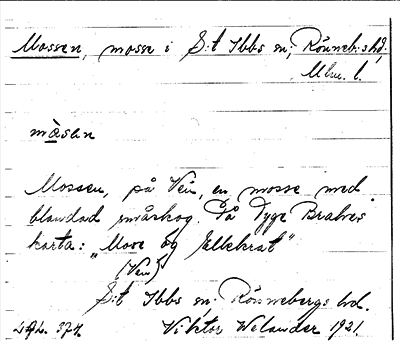 Mossen, mosse i S:t Ibbs sn; Rönnebs hd.
Mlm. l.
mɷsan
Mossen, på Ven, en mosse med
blandad småskog. På Tyge Brahes
karta: "Mose og Ellekrat"
(Ven)
S:t Ibbs sn; Rönnebergs hd.
Viktor Welander 1921.